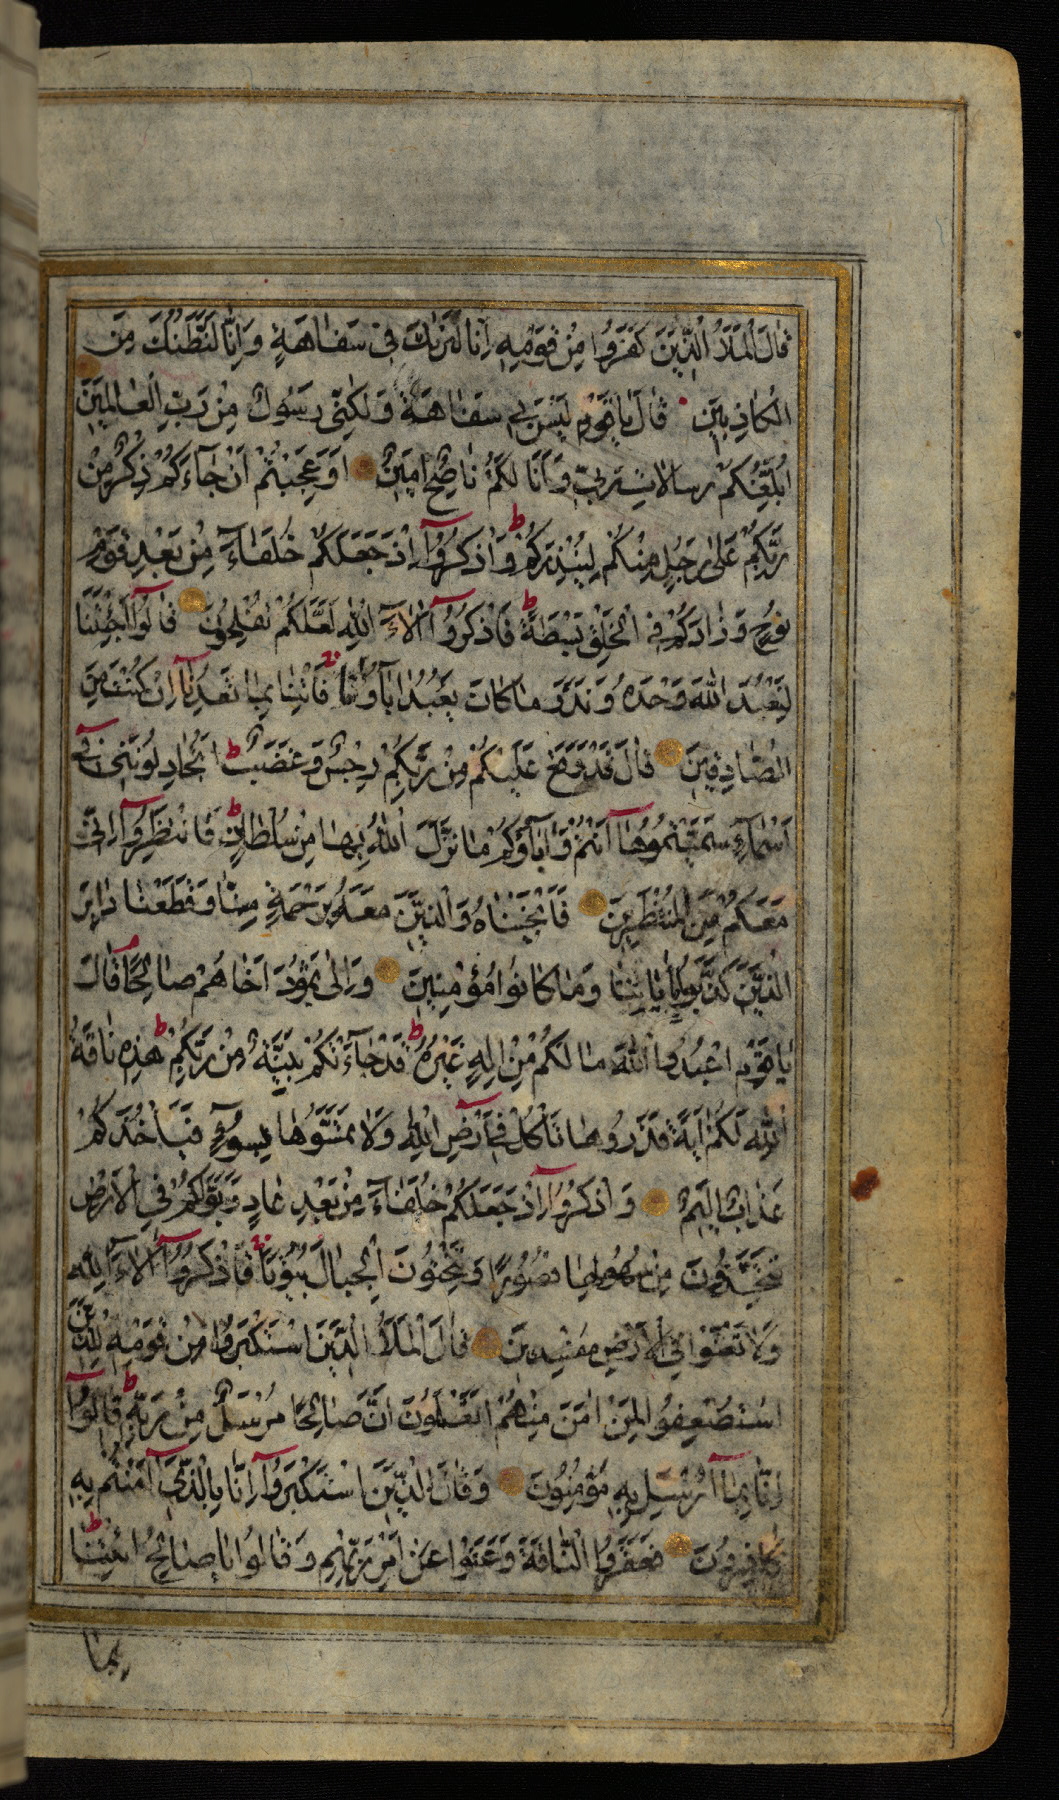 قَالَ الْمَلَأُ الَّذِينَ كَفَرُوا مِنْ قَوْمِهِ إِنَّا لَنَرَاكَ فِي سَفَاهَةٍ وَإِنَّا لَنَظُنُّكَ مِنَ
الْكَاذِبِينَ قَالَ يَا قَوْمِ لَيْسَ بِي سَفَاهَةٌ وَلَكِنِّي رَسُولٌ مِنْ رَبِّ الْعَالَمِينَ
أُبَلِّغُكُمْ رِسَالَاتِ رَبِّي وَأَنَا لَكُمْ نَاصِحٌ أَمِينٌ أَوَعَجِبْتُمْ أَنْ جَاءَكُمْ ذِكْرٌ مِنْ
رَبِّكُمْ عَلَى رَجُلٍ مِنْكُمْ لِيُنْذِرَكُمْ ط وَاذْكُرُوا إِذْ جَعَلَكُمْ خُلَفَاءَ مِنْ بَعْدِ قَوْمِ
نُوحٍ وَزَادَكُمْ فِي الْخَلْقِ بَسْطَةً ط فَاذْكُرُوا آلَاءَ اللَّهِ لَعَلَّكُمْ تُفْلِحُونَ قَالُوا أَجِئْتَنَا
لِنَعْبُدَ اللَّهَ وَحْدَهُ وَنَذَرَ مَا كَانَ يَعْبُدُ آبَاؤُنَا فَأْتِنَا بِمَا تَعِدُنَا إِنْ كُنْتَ مِنَ
الصَّادِقِينَ قَالَ قَدْ وَقَعَ عَلَيْكُمْ مِنْ رَبِّكُمْ رِجْسٌ وَغَضَبٌ ط أَتُجَادِلُونَنِي فِي
أَسْمَاءٍ سَمَّيْتُمُوهَا أَنْتُمْ وَآبَاؤُكُمْ مَا نَزَّلَ اللَّهُ بِهَا مِنْ سُلْطَانٍ ط فَانْتَظِرُوا إِنِّي
مَعَكُمْ مِنَ الْمُنْتَظِرِينَ فَأَنْجَيْنَاهُ وَالَّذِينَ مَعَهُ بِرَحْمَةٍ مِنَّا وَقَطَعْنَا دَابِرَ
الَّذِينَ كَذَّبُوا بِآيَاتِنَا وَمَا كَانُوا مُؤْمِنِينَ وَإِلَى ثَمُودَ أَخَاهُمْ صَالِحًا م قَالَ
يَا قَوْمِ اعْبُدُوا اللَّهَ مَا لَكُمْ مِنْ إِلَهٍ غَيْرُهُ ط قَدْ جَاءَتْكُمْ بَيِّنَةٌ مِنْ رَبِّكُمْ ط هَذِهِ نَاقَةُ
اللَّهِ لَكُمْ آيَةً فَذَرُوهَا تَأْكُلْ فِي أَرْضِ اللَّهِ وَلَا تَمَسُّوهَا بِسُوءٍ فَيَأْخُذَكُمْ
عَذَابٌ أَلِيمٌ وَاذْكُرُوا إِذْ جَعَلَكُمْ خُلَفَاءَ مِنْ بَعْدِ عَادٍ وَبَوَّأَكُمْ فِي الْأَرْضِ
تَتَّخِذُونَ مِنْ سُهُولِهَا قُصُورًا وَتَنْحِتُونَ الْجِبَالَ بُيُوتًا فَاذْكُرُوا آلَاءَ اللَّهِ
وَلَا تَعْثَوْا فِي الْأَرْضِ مُفْسِدِينَ قَالَ الْمَلَأُ الَّذِينَ اسْتَكْبَرُوا مِنْ قَوْمِهِ لِلَّذِينَ
اسْتُضْعِفُوا لِمَنْ آمَنَ مِنْهُمْ أَتَعْلَمُونَ أَنَّ صَالِحًا مُرْسَلٌ مِنْ رَبِّهِ ط قَالُوا
إِنَّا بِمَا أُرْسِلَ بِهِ مُؤْمِنُونَ وَقَالَ الَّذِينَ اسْتَكْبَرُوا إِنَّا بِالَّذِي آمَنْتُمْ بِهِ
كَافِرُونَ فَعَقَرُوا النَّاقَةَ وَعَتَوْا عَنْ أَمْرِ رَبِّهِمْ وَقَالُوا يَا صَالِحُ ائْتِنَا
بِمَا